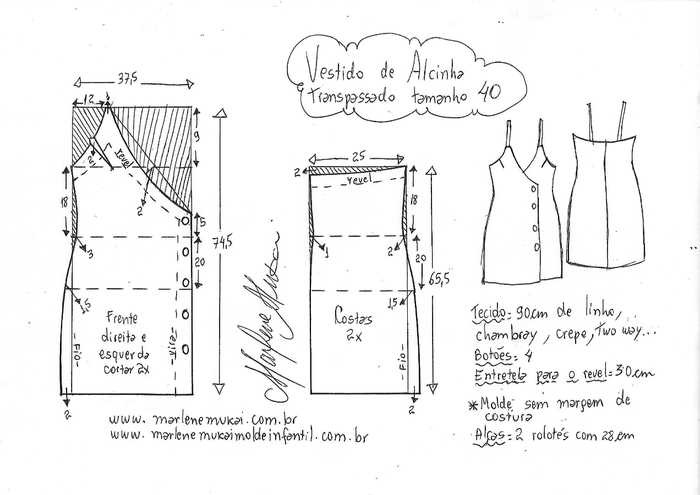 Vestido de Alcinha
transpassado tamanho 40
37,5
12
9
2,5
revel
2
18
5
74,5
3
20
1,5
Frente
direita e
esquerda
cortar 2x
Fio
vira
2
25
2
revel
18
1
2
20
65,5
1,5
Costas
2x
Fio
2
Marlene Mukai
www.marlenemukai.com.br
www.marlenemukaimoldeinfantil.com.br
Tecido= 90cm de linho,
chambray, crepe, two way...
Botões= 4
Entretela para o revel=30cm
*Molde sem margem de
costura
Alças= 2 rolotês com 28cm